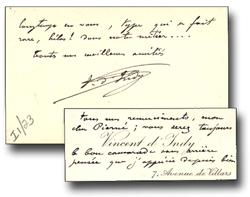 longtemps en vous, type qui se fait
rare, hélas! dans notre métier....
toutes nos meilleures amitiés
V. d'Indy
I/23
tous mes remerciements, mon
cher Pierné; vous serez toujours
Vincent d'Indy
le bon camarade sans arrière
pensée que j'apprécie depuis bien
7, Avenue de Villars